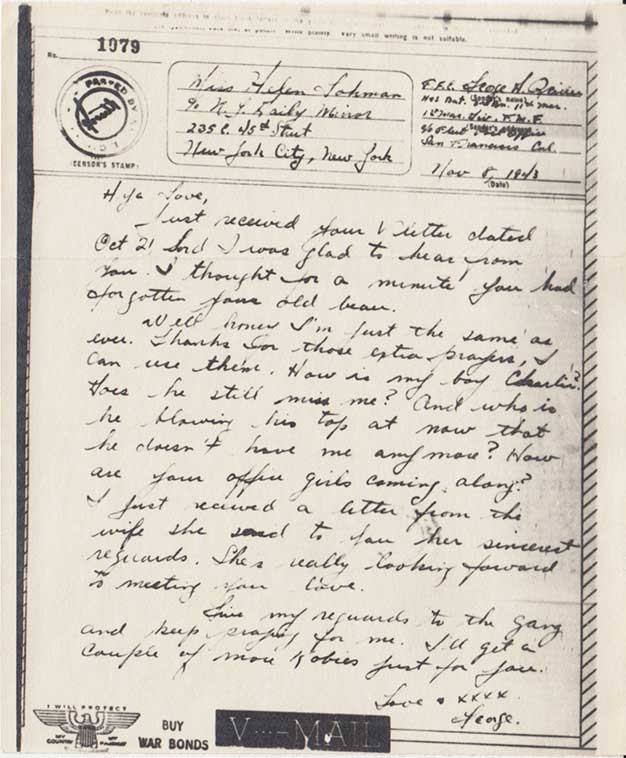 very small writing is not suitable.
No.
1079
PASSED BY
CENSOR'S STAMP)
Miss Helen Lohman
% N.Y. Daily Mirror
235 E. 45th Street
New York City, New York
P.F.C. George
(Sender's name)
1st Mar. Div. F.M.F.
San Francisco Cal.
Nov 8, 1943
(Date)
Hya Love,
Just received your V letter dated
Oct 21 and I was glad to hear from
you. I thought for a minute you had
forgotten your old beau.
Well honey I'm just the same as
ever. Thanks for those extra prayers, I
can use them. How is my boy Charlie?
Does he still miss me? And who is
he blowing his top at now that
he doesn't have me any more? How
are your office girls coming along?
I just received a letter from the
wife she send to you her sincerest
reguards. She's really looking forward
to meeting you love.
Give my reguards to the gang
and keep praying for me. I'll get a
couple of more for you.
Love & xxxx.
George.
I WILL PROTECT
MY COUNTRY
MY
BUY
WAR BONDS
V···–MAIL